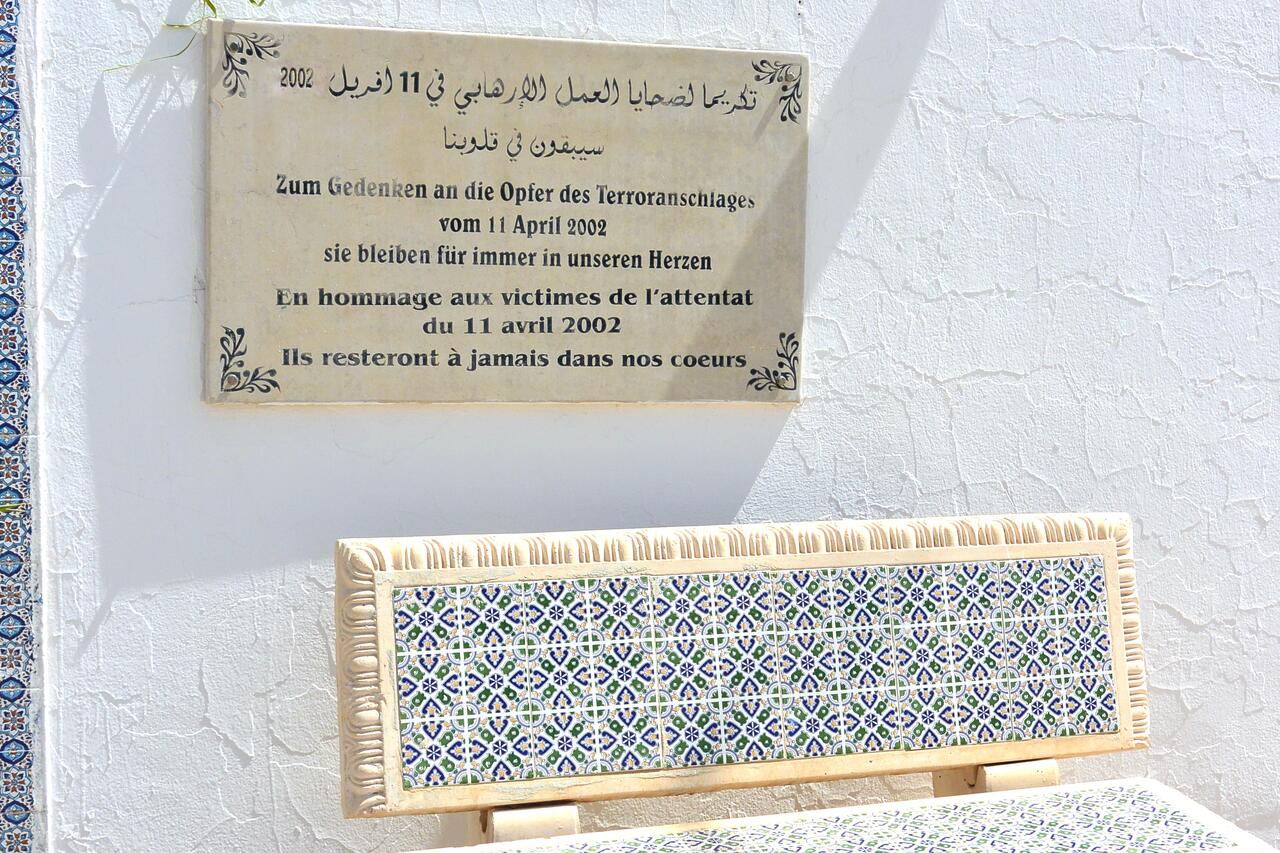 تكريما لضحايا العمل الإرهابي في 11 افريل 2002
سيبقون في قلوبنا
Zum Gedenken an die Opfer des Terroranschlages
vom 11 April 2002
sie bleiben für immer in unseren Herzen
En hommage aux victimes de l'attentat
du 11 avril 2002
Ils resteront à jamais dans nos coeurs